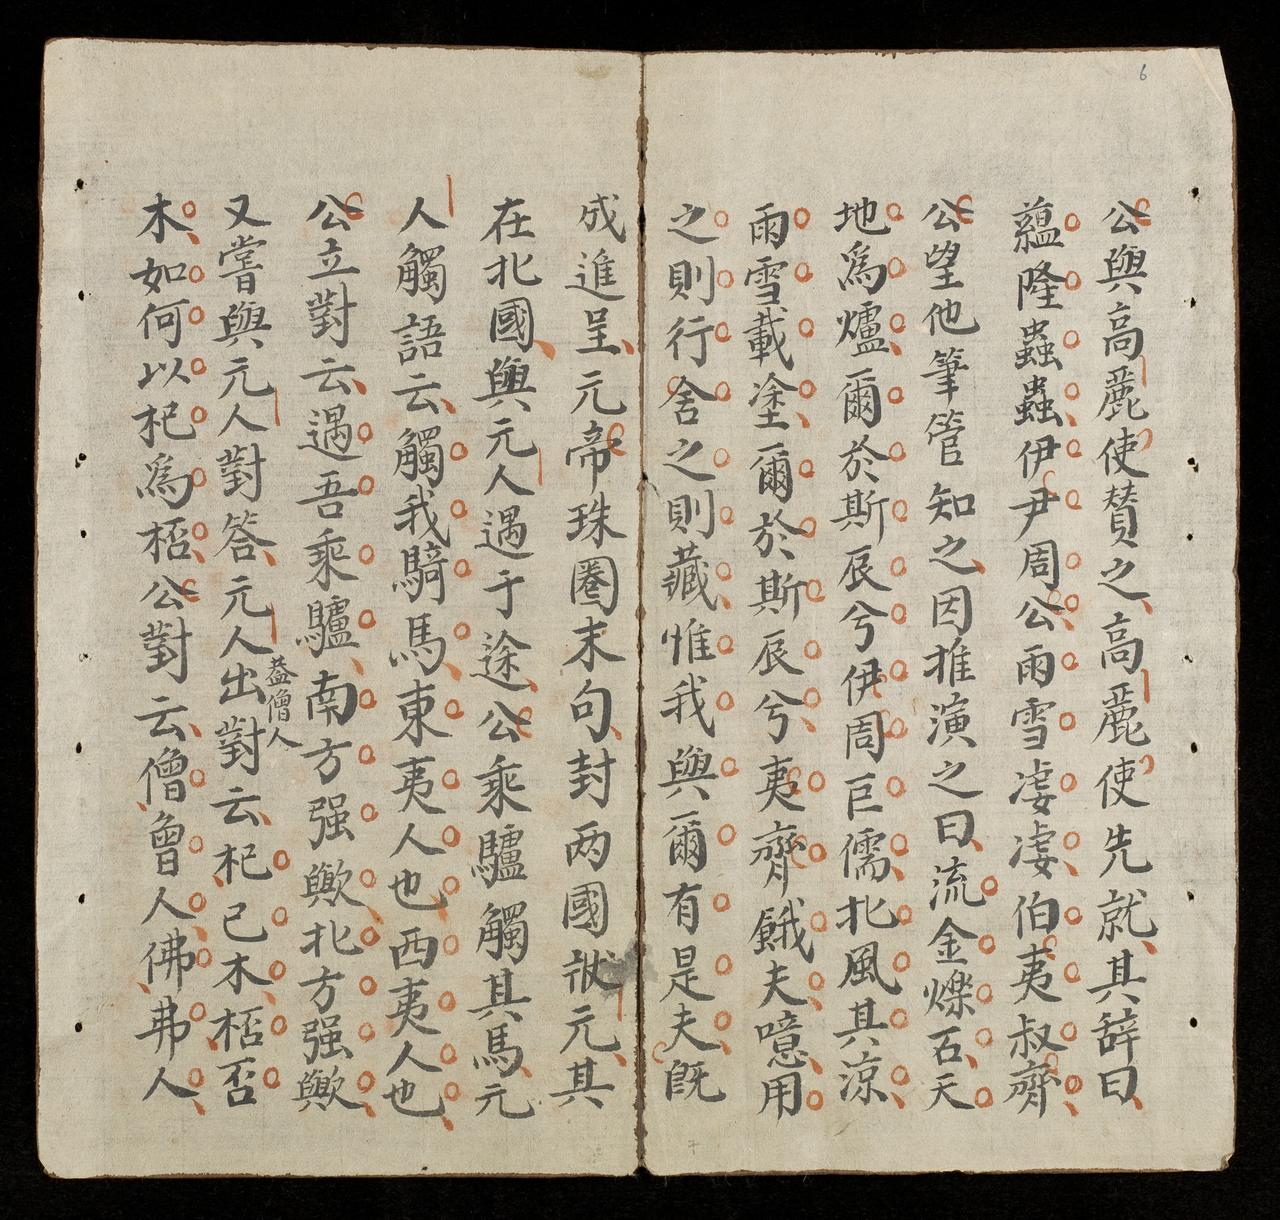 6
公與高麗使賛之高麗使先就其辞曰
蘊隆蟲蟲伊尹周公雨雪凄凄伯夷叔齊
公望他筆管知之因推演之曰流金爍石天
地爲爐爾於斯辰兮伊周巨儒北風其涼
雨雪載塗爾於斯辰兮夷齊餓夫噫用
之則行舍之則藏惟我與爾有是夫既
成進呈元帝珠圈末句封两國狀元其
在北國與元人遇于途公乘驢觸其馬元
人觸語云觸我騎馬東夷人也西夷人也
公立對云遇吾乘驢南方强歟北方强歟
又嘗與元人對答元人出對云杞已木桮否
益僧人
木如何以杞爲桮公對云僧曾人佛弗人